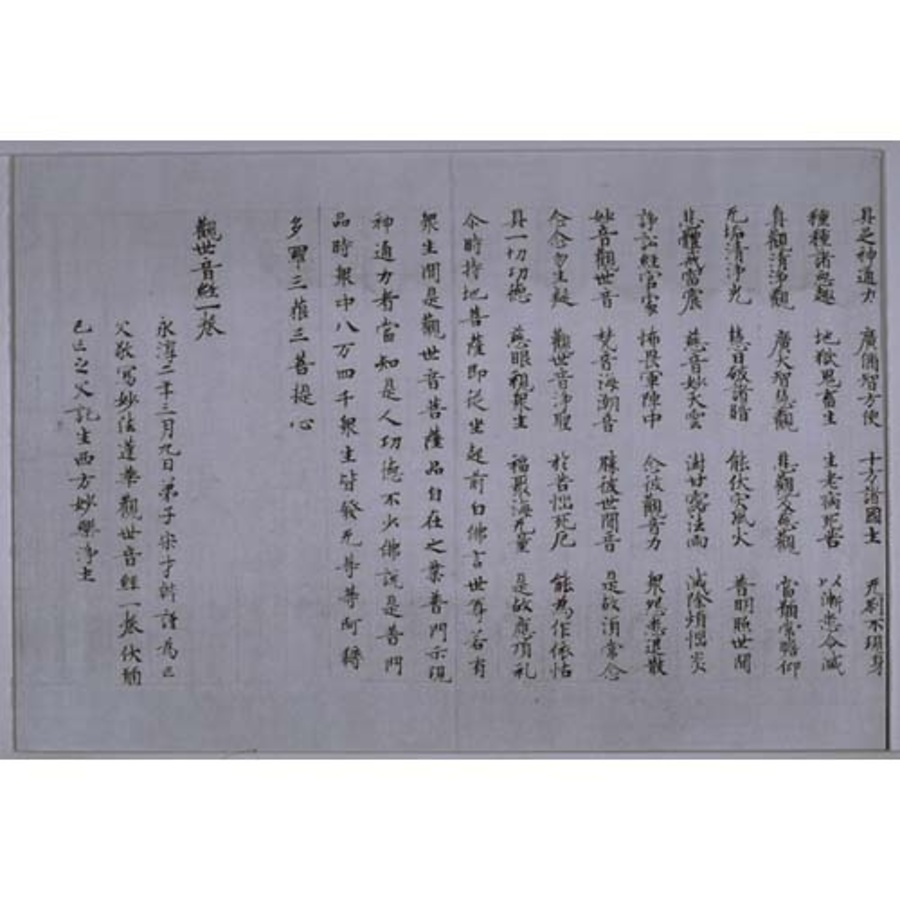 具足神通力 廣俻智方便 十方諸國土 无刹不現身
種種諸惡趣 地獄鬼畜生 生老病死苦 以漸悉令滅
真觀清淨觀 廣大智慧觀 悲觀及慈觀 當願常瞻仰
无垢清淨光 慧日破諸暗 能伏灾風火 普明照世間
悲體戒雷震 慈音妙大雲 澍甘露法雨 滅除煩惱炎
諍訟經官家 怖畏軍陣中 念彼觀音力 衆怨悉退散
妙音觀世音 梵音海潮音 勝彼世間音 是故湏常念
念念勿生疑 觀世音淨聖 於苦惱死厄 能為作依怙
具一切功德 慈眼視衆生 福聚海无量 是故應頂礼
尒時持地菩薩即從坐起前白佛言世尊若有
衆生聞是觀世音菩薩品自在之業普門示現
神通力者當知是人功德不少佛說是普門
品時衆中八万四千衆生皆發无等等阿耨
多羅三藐三菩提心
觀世音經一卷
永淳二年三月九日弟子宋才 為亡
父敬寫妙法蓮華觀世音經一卷伏願
亡之父託生西方妙樂淨土